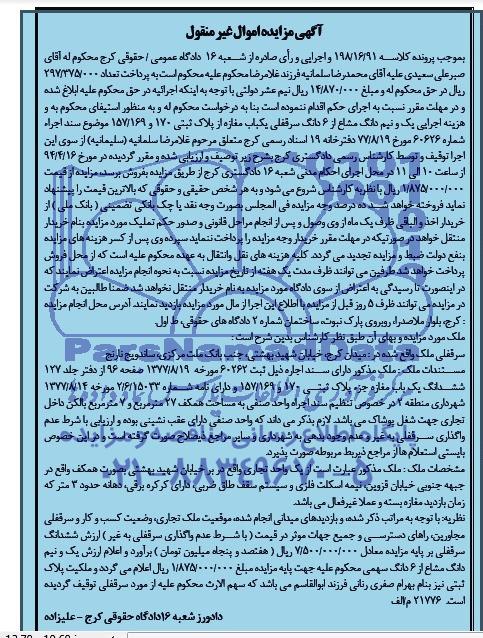 آگهی مزایده اموال غیر منقول
بموجب پرونده کلاسه ۱۹۸/۱۶/۹۱ و اجرایی و رأی صادره از شعبه ۱۶ دادگاه عمومی / حقوقی کرج محکوم له آقای
صبرعلی سعیدی علیه آقای محمدرضا سلمانیه فرزند غلامرضا محکوم علیه محکوم است به پرداخت تعداد ۲۹۷/۳۷۵/۰۰۰
ریال در حق محکوم له و مبلغ ۱۴/۸۷۰/۰۰۰ ریال نیم عشر دولتی با توجه به اینکه اجرائیه در حق محکوم علیه ابلاغ شده
و در مهلت مقرر نسبت به اجرای حکم اقدام ننموده است بنا به درخواست محکوم له و به منظور استیفای محکوم به و
هزینه اجرایی یک و نیم دانگ مشاع از ۶ دانگ سرقفلی یکباب مغازه از پلاک ثبتی ۱۷۰ و ۱۵۷/۱۶۹ موضوع سند اجراء
شماره ۶۰۶۲۶ مورخ ۷۷/۸/۱۹ دفترخانه ۱۹ اسناد رسمی کرج متعلق مرحوم غلامرضا سلمانیه (سلیمانیه) از سوی این
اجرا توقیف و توسط کارشناس رسمی دادگستری کرج بشرح زیر توصیف و ارزیابی شده و مقرر گردیده در مورخ ۹۴/۴/۱۶
از ساعت ۱۰ الی ۱۱ در محل اجرای احکام مدنی شعبه ۱۶ دادگستری کرج از طریق مزایده بفروش برسد، مزایده از قیمت
۱/۸۷۵/۰۰۰/۰۰۰ ریال با نظریه کارشناس شروع می شود و به هر شخص حقیقی و حقوقی که بالاترین قیمت را پیشنهاد
نماید فروخته خواهد شد ده درصد وجه مزایده فی المجلس بصورت وجه نقد یا چک بانکی تضمینی ( بانک ملی ) از
خریدار اخذ والباقی ظرف یک ماه از وی وصول و پس از انجام مراحل قانونی و صدور حکم تملیک مورد مزایده بنام خریدار
منتقل خواهد در صورتیکه در مهلت مقرر خریدار وجه مزایده را پرداخت ننماید سپرده وی پس از کسر هزینه های مزایده
بنفع دولت ضبط و مزایده تجدید می گردد. کلیه هزینه های نقل وانتقال به عهده محکوم علیه است که از محل فروش
پرداخت خواهد شد طرفین می توانند ظرف مدت یک هفته از تاریخ مزایده نسبت به نحوه انجام مزایده اعتراض نمایند که
در اینصورت تا رسیدگی به اعتراض از سوی دادگاه مورد مزایده به نام خریدار منتقل نخواهد شد ضمنا طالبین به شرکت
در مزایده می توانند ظرف ۵ روز قبل از مزایده با اطلاع این اجرا از مال مورد مزایده بازدید نمایند. آدرس محل انجام مزایده
: کرج، بلوار ملاصدرا، روبروی پارک نبوت، ساختمان شماره ۲ دادگاه های حقوقی، ط اول.
ملک مورد مزایده و بهای آن طبق نظر کارشناس بدین شرح است :
سرقفلی ملک واقع شده در : میدان کرج، خیابان شهید بهشتی، جنب بانک ملت مرکزی، ساندویچ نارنج
مستندات ملک : ملک مذکور دارای سند اجاره ذیل ثبت ۶۰۲۶۲ مورخه ۱۳۷۷/۸/۱۹ صفحه ۹۶ از دفتر جلد ۱۲۷
ششدانگ یک باب مغازه جزء پلاک ثبتی ۱۷۰ و ۱۵۷/۱۶۹ و دارای نامه شماره ۲/۶/۱۵۰۳۳ مورخه ۱۳۷۷/۸/۱۴
شهرداری منطقه ۲ در خصوص تنظیم سند اجراه واحد صنفی به مساحت همکف ۲۷ مترمربع و ۷ مترمربع بالکن داخل
تجاری جهت شغل پوشاک می باشد. لازم بذکر می داند که واحد صنفی دارای عقب نشینی بوده و ارزیابی با شرط عدم
واگذاری سرقفلی به غیر و عدم وجود بدهی به شهرداری و سایر مراجع ذیصلاح صورت گرفته است و در این خصوص
بایستی استعلام ها از مراجع ذیربط مربوطه صورت پذیرد.
مشخصات ملک : ملک مذکور عبارت است از یک واحد تجاری واقع در بر خیابان شهید بهشتی بصورت همکف واقع در
جبهه جنوبی خیابان قزوین، نیمه اسکلت فلزی و سیستم سقف طاق ضربی، دارای کرکره برقی، دهانه حدود ۳ متر که
زمان بازدید مغازه بسته و عملا غیرفعال می باشد.
نظریه: با توجه به مراتب ذکر شده، و بازدیدهای میدانی انجام شده، موقعیت ملک تجاری، وضعیت کسب و کار و سرقفلی
مجاورین، راهای دسترسی و جمیع جهات موثر در قیمت ( با شرط عدم واگذاری سرقفلی به غیر ) ارزش ششدانگ
سرقفلی بر پایه مزایده معادل ۷/۵۰۰/۰۰۰/۰۰۰ ریال ( هفتصد و پنجاه میلیون تومان ) برآورد و اعلام ارزش یک و نیم
دانگ مشاع از ۶ دانگ سهمی محکوم علیه جهت پایه مزایده مبلغ ۱/۸۷۵/۰۰۰/۰۰۰ ریال اعلام می گردد و ملکیت پلاک
ثبتی نیز بنام بهرام صفری رنانی فرزند ابوالقاسم می باشد که سهم الارث محکوم علیه از مورد سرقفلی توقیف گردیده
است. ۲۱۷۷۶ م/الف
دادورز شعبه ۱۶ دادگاه حقوقی کرج - علیزاده
ParsNamadData
۰۲۱-۸۸۳۴۹۶۷۰-۵